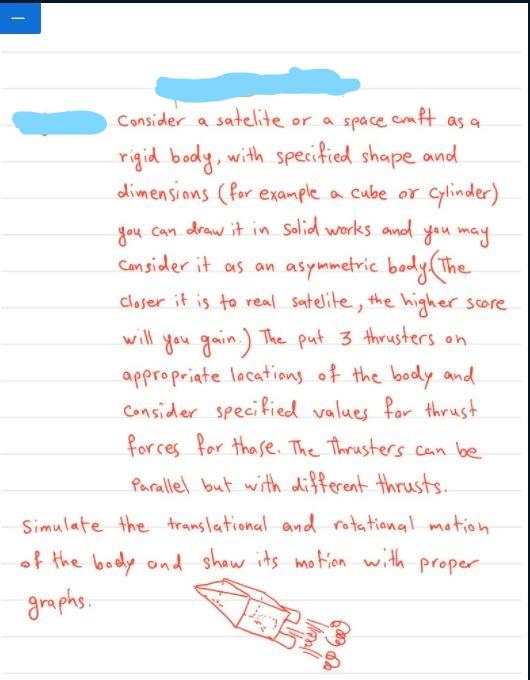 Consider a satelite or a space craft as a
rigid body, with specified shape and
dimensions (for example a cube or cylinder)
you can draw it in Solid works and you may
Consider it as an asymmetric body. (The
closer it is to real satelite, the higher score
will you gain.) The put 3 thrusters on
appropriate locations of the body and
Consider specified values for thrust
forces for those. The Thrusters can be
Parallel but with different thrusts.
Simulate the translational and rotational motion
of the body and show its motion with proper
graphs.